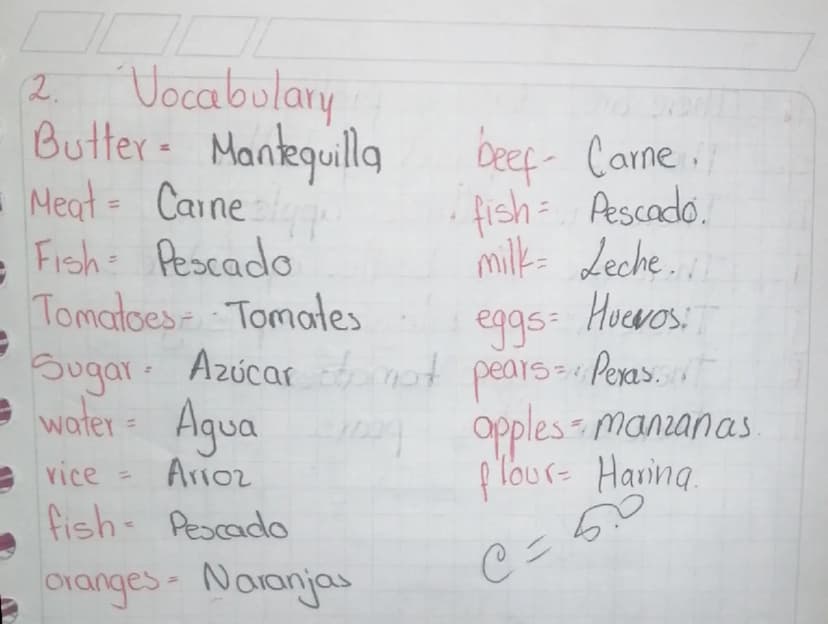 2. Vocabulary
Butter = Mantequilla
Meat = Carne
Fish = Pescado
Tomatoes = Tomates
Sugar = Azúcar
water = Agua
rice = Arroz
fish = Pescado
oranges = Naranjas
beef - Carne.
fish = Pescado.
milk = Leche.
eggs = Huevos.
pears = Peras.
apples = manzanas.
flour = Harina.
C = 5.0